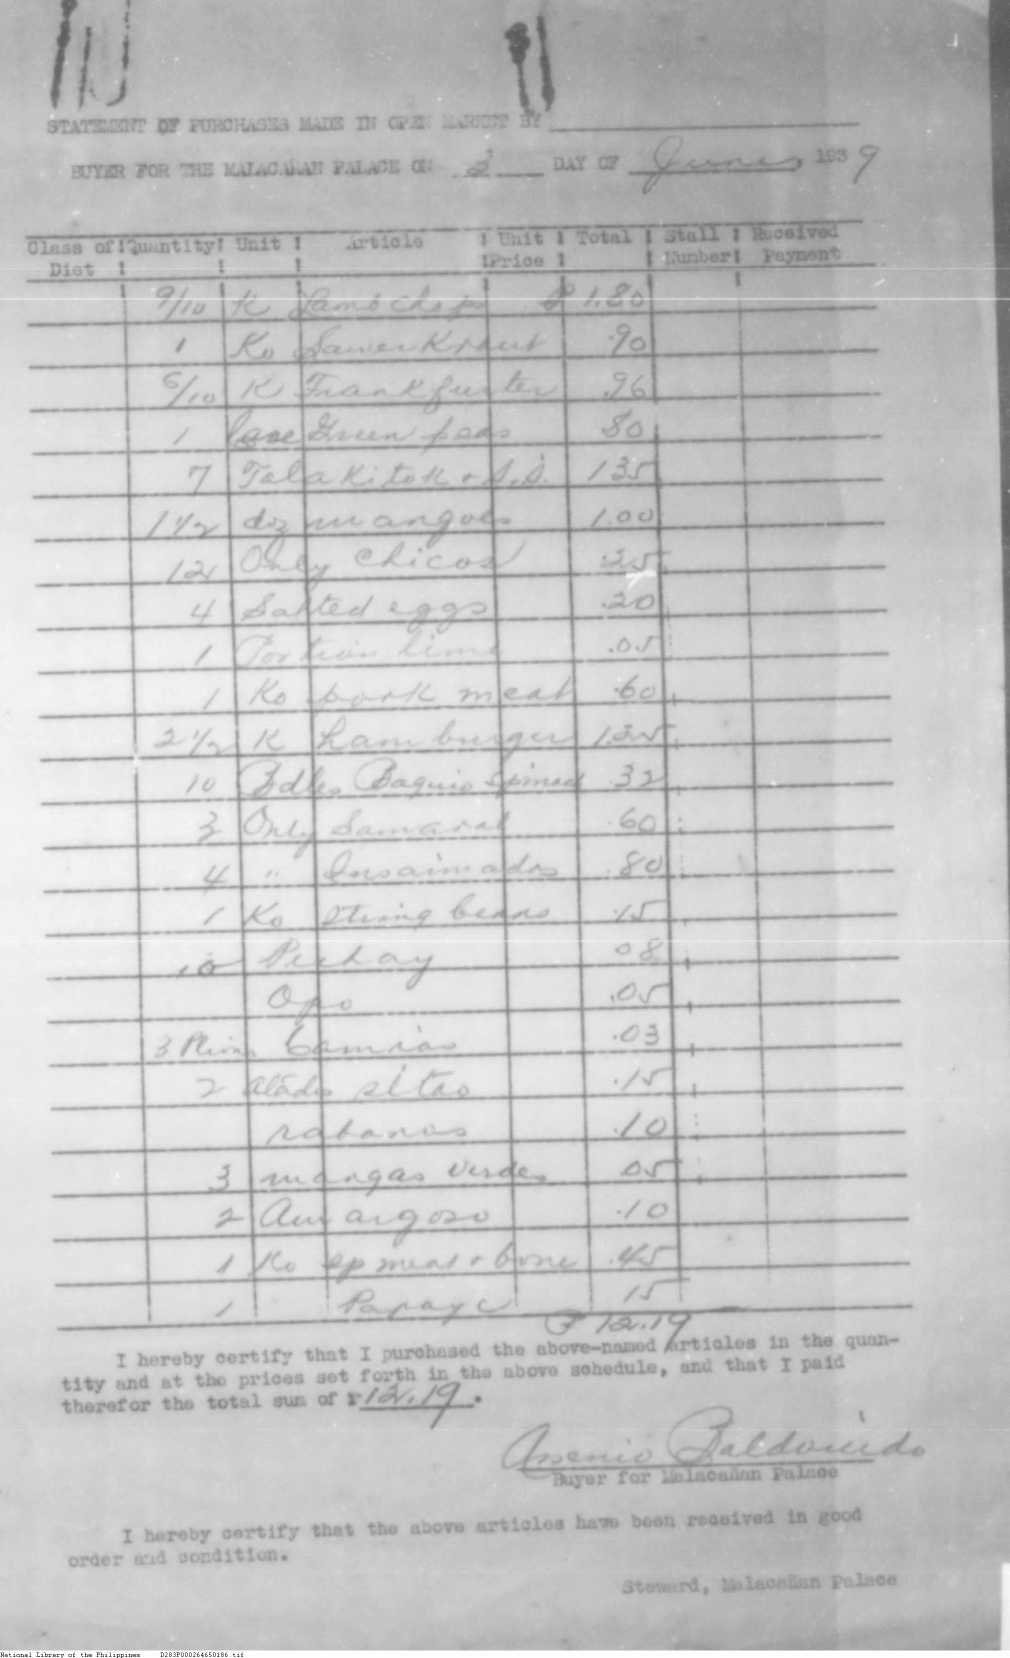 STATEMENT OF PURCHASES MADE IN OPEN MARKET BY
BUYER FOR THE MALACAÑAN PALACE ON 2 DAY OF June 1939
Class of Diet Quantity Unit Article Unit Price Total Stall Number Received Payment
9/10 K Lamb chops ₱ 1.80
1 Ko Sauerkraut .90
6/10 K Frankfurter .96
1 Green peas 80
7 Talakitok + S.S. 135
1 1/2 doz mangoes 1.00
12 Only Chicos .25
4 Salted eggs .20
1 Portion lime .05
1 Ko pork meat .60
2 1/2 K hamburger 1.25
10 Bdles Baguio 32
3 Only Samaral .60
4 " Ensaimados .80
1 Ko string beans .15
10 Pechay 08
Opo .05
3 camias .03
2 atado sitao .15
rabanos .10
3 mangas verdes 05
2 Amargoso .10
1 Ko sp meat + bone .45
1 Papaya 15
₱ 12.19
I hereby certify that I purchased the above-named articles in the quan-
tity and at the prices set forth in the above schedule, and that I paid
therefor the total sum of ₱12.19.
Arsenio
Buyer for Malacañan Palace
I hereby certify that the above articles have been received in good
order and condition.
Steward, Malacañan Palace
National Library of the Philippines D283P000264650186.tif